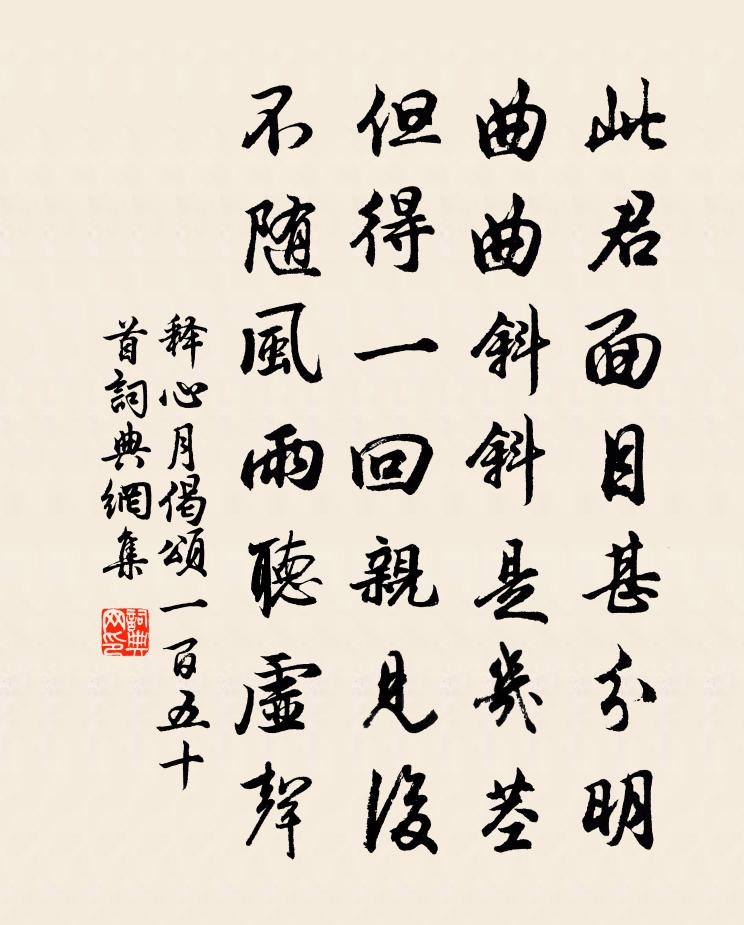 此君面目甚分明
曲曲斜斜是幾茎
但得一回親見後
不随風雨聽虛聲
释心月偈頌一百五十
首詞典網集
詞典
网印